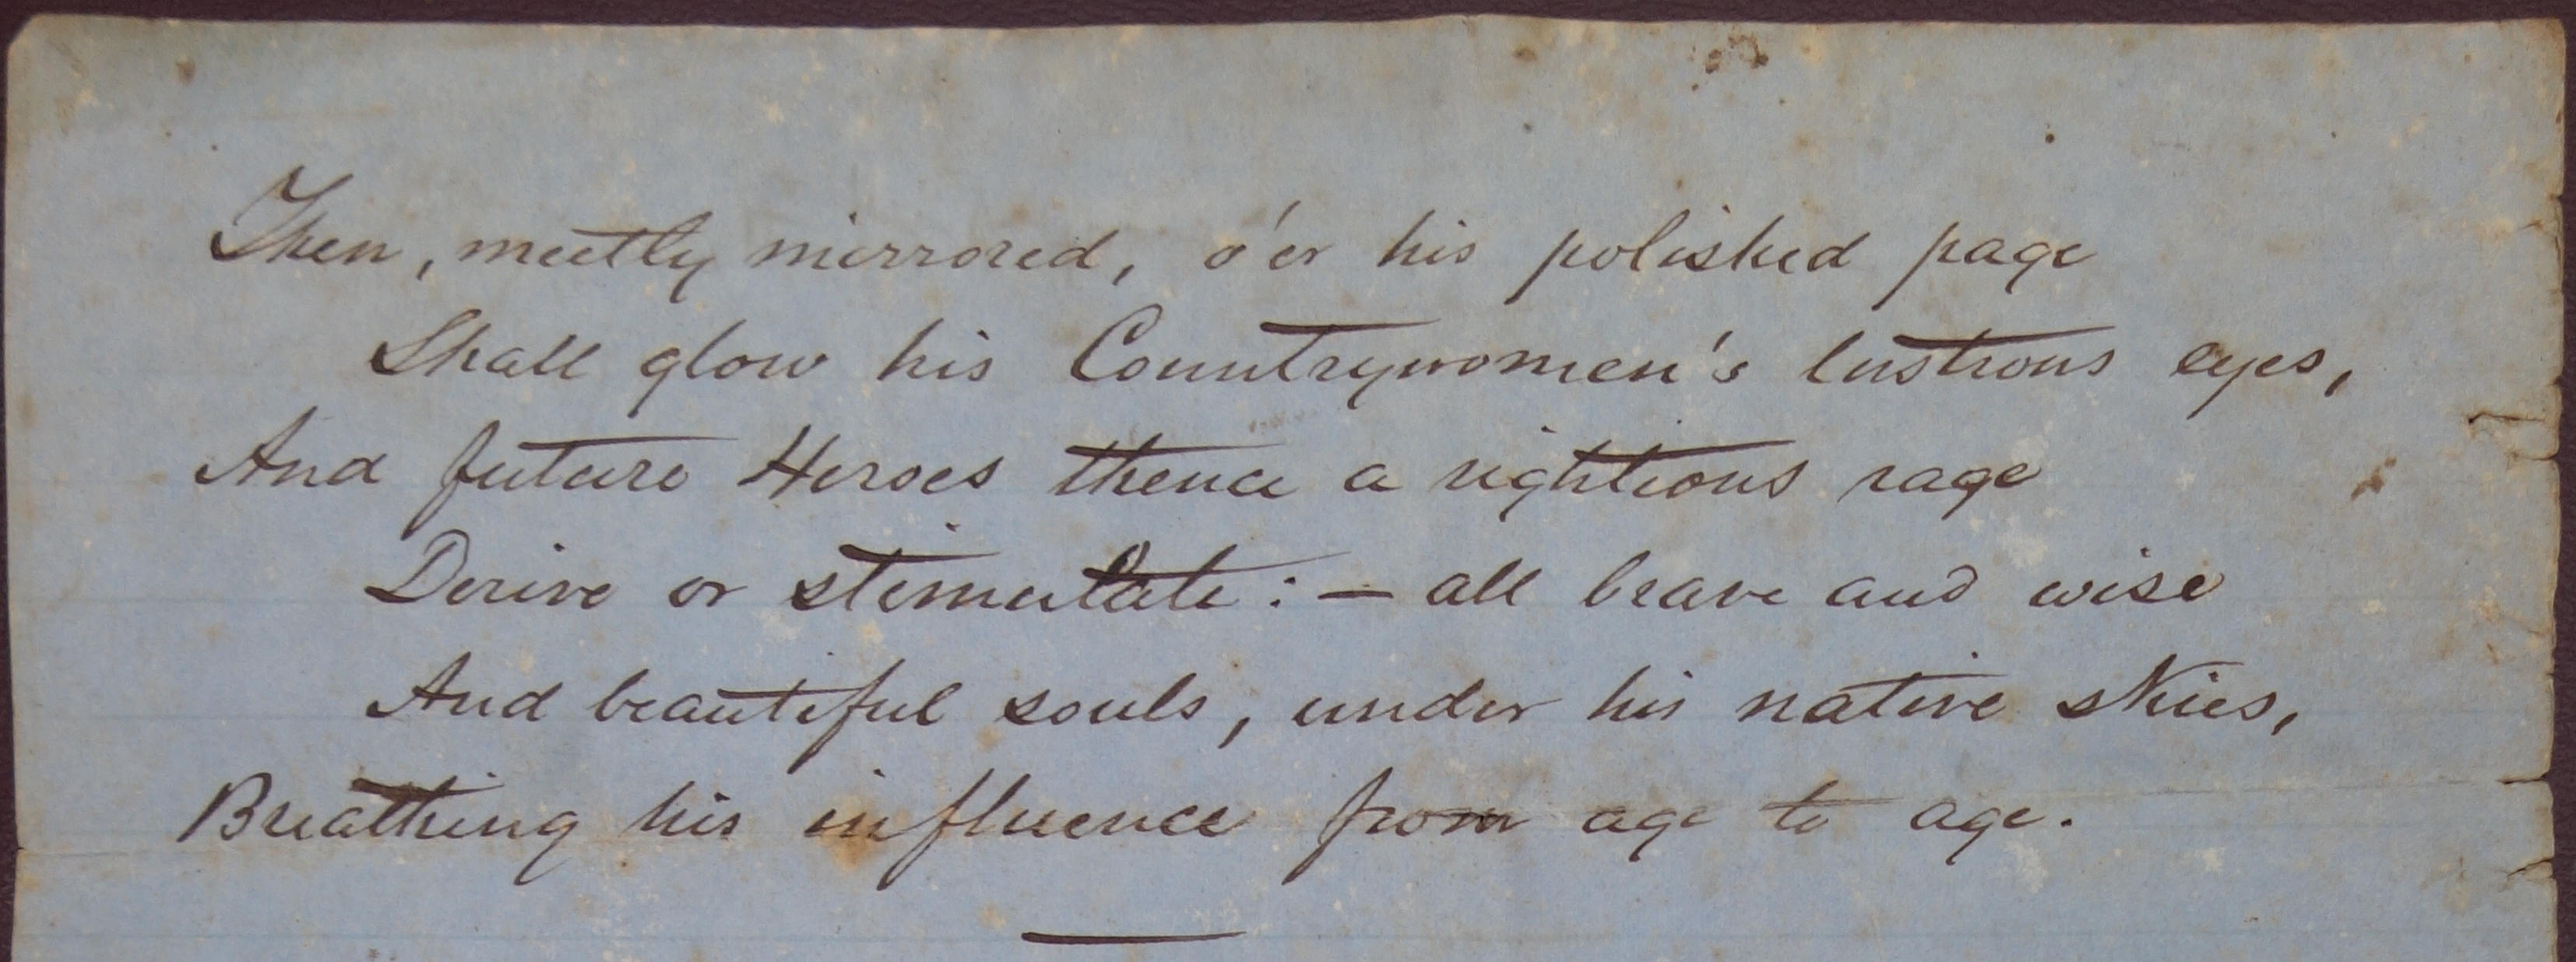 Then, meetly mirrored, o'er his polished page
Shall glow his Countrywomen's lustrous eyes,
And future Heroes thence a righteous rage
Derive or stimulate: — all brave and wise
And beautiful souls, under his native skies,
Breathing his influence from age to age.